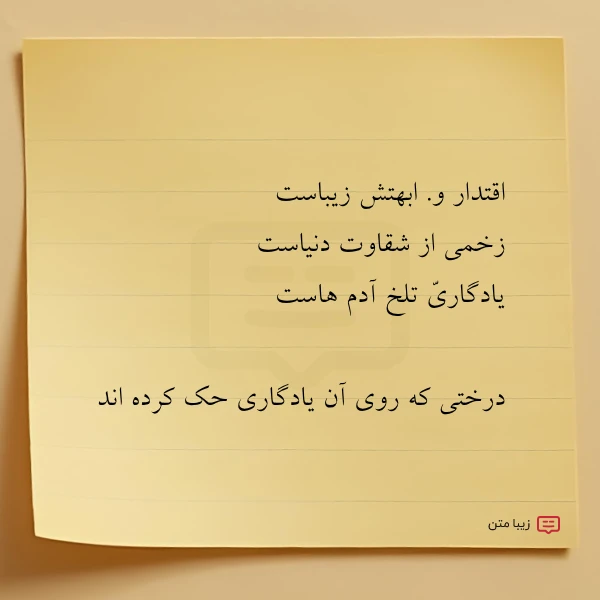 اقتدار و. ابهتش زیباست
زخمی از شقاوت دنیاست
یادگاریّ تلخ آدم هاست
درختی که روی آن یادگاری حک کرده اند
زیبا متن